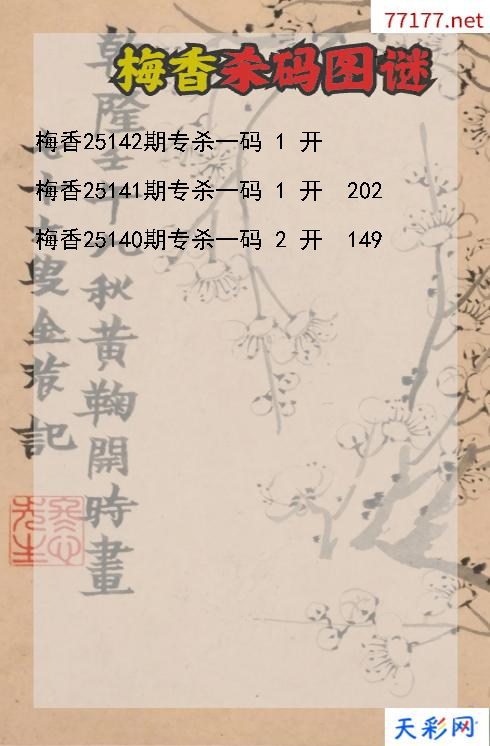 77177.net
梅香杀码图谜
梅香25142期专杀一码 1 开
梅香25141期专杀一码 1 开 202
梅香25140期专杀一码 2 开 149
乾隆壬午九秋黄鞠開時畫
七十六叟金農記
天彩网